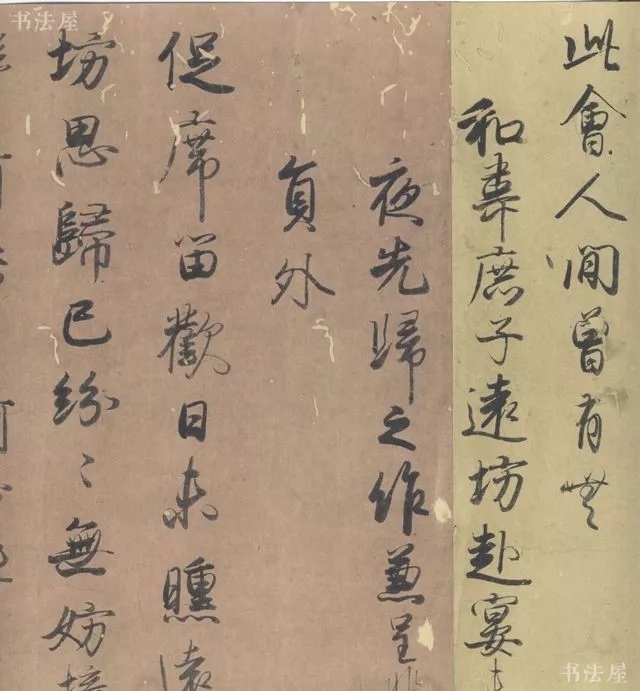 此會人間曾有無
和韋庶子遠坊赴宴
夜先歸之作兼呈
員外
促席留歡日未曛遠
坊思歸已紛〻無妨
书法屋
书法屋